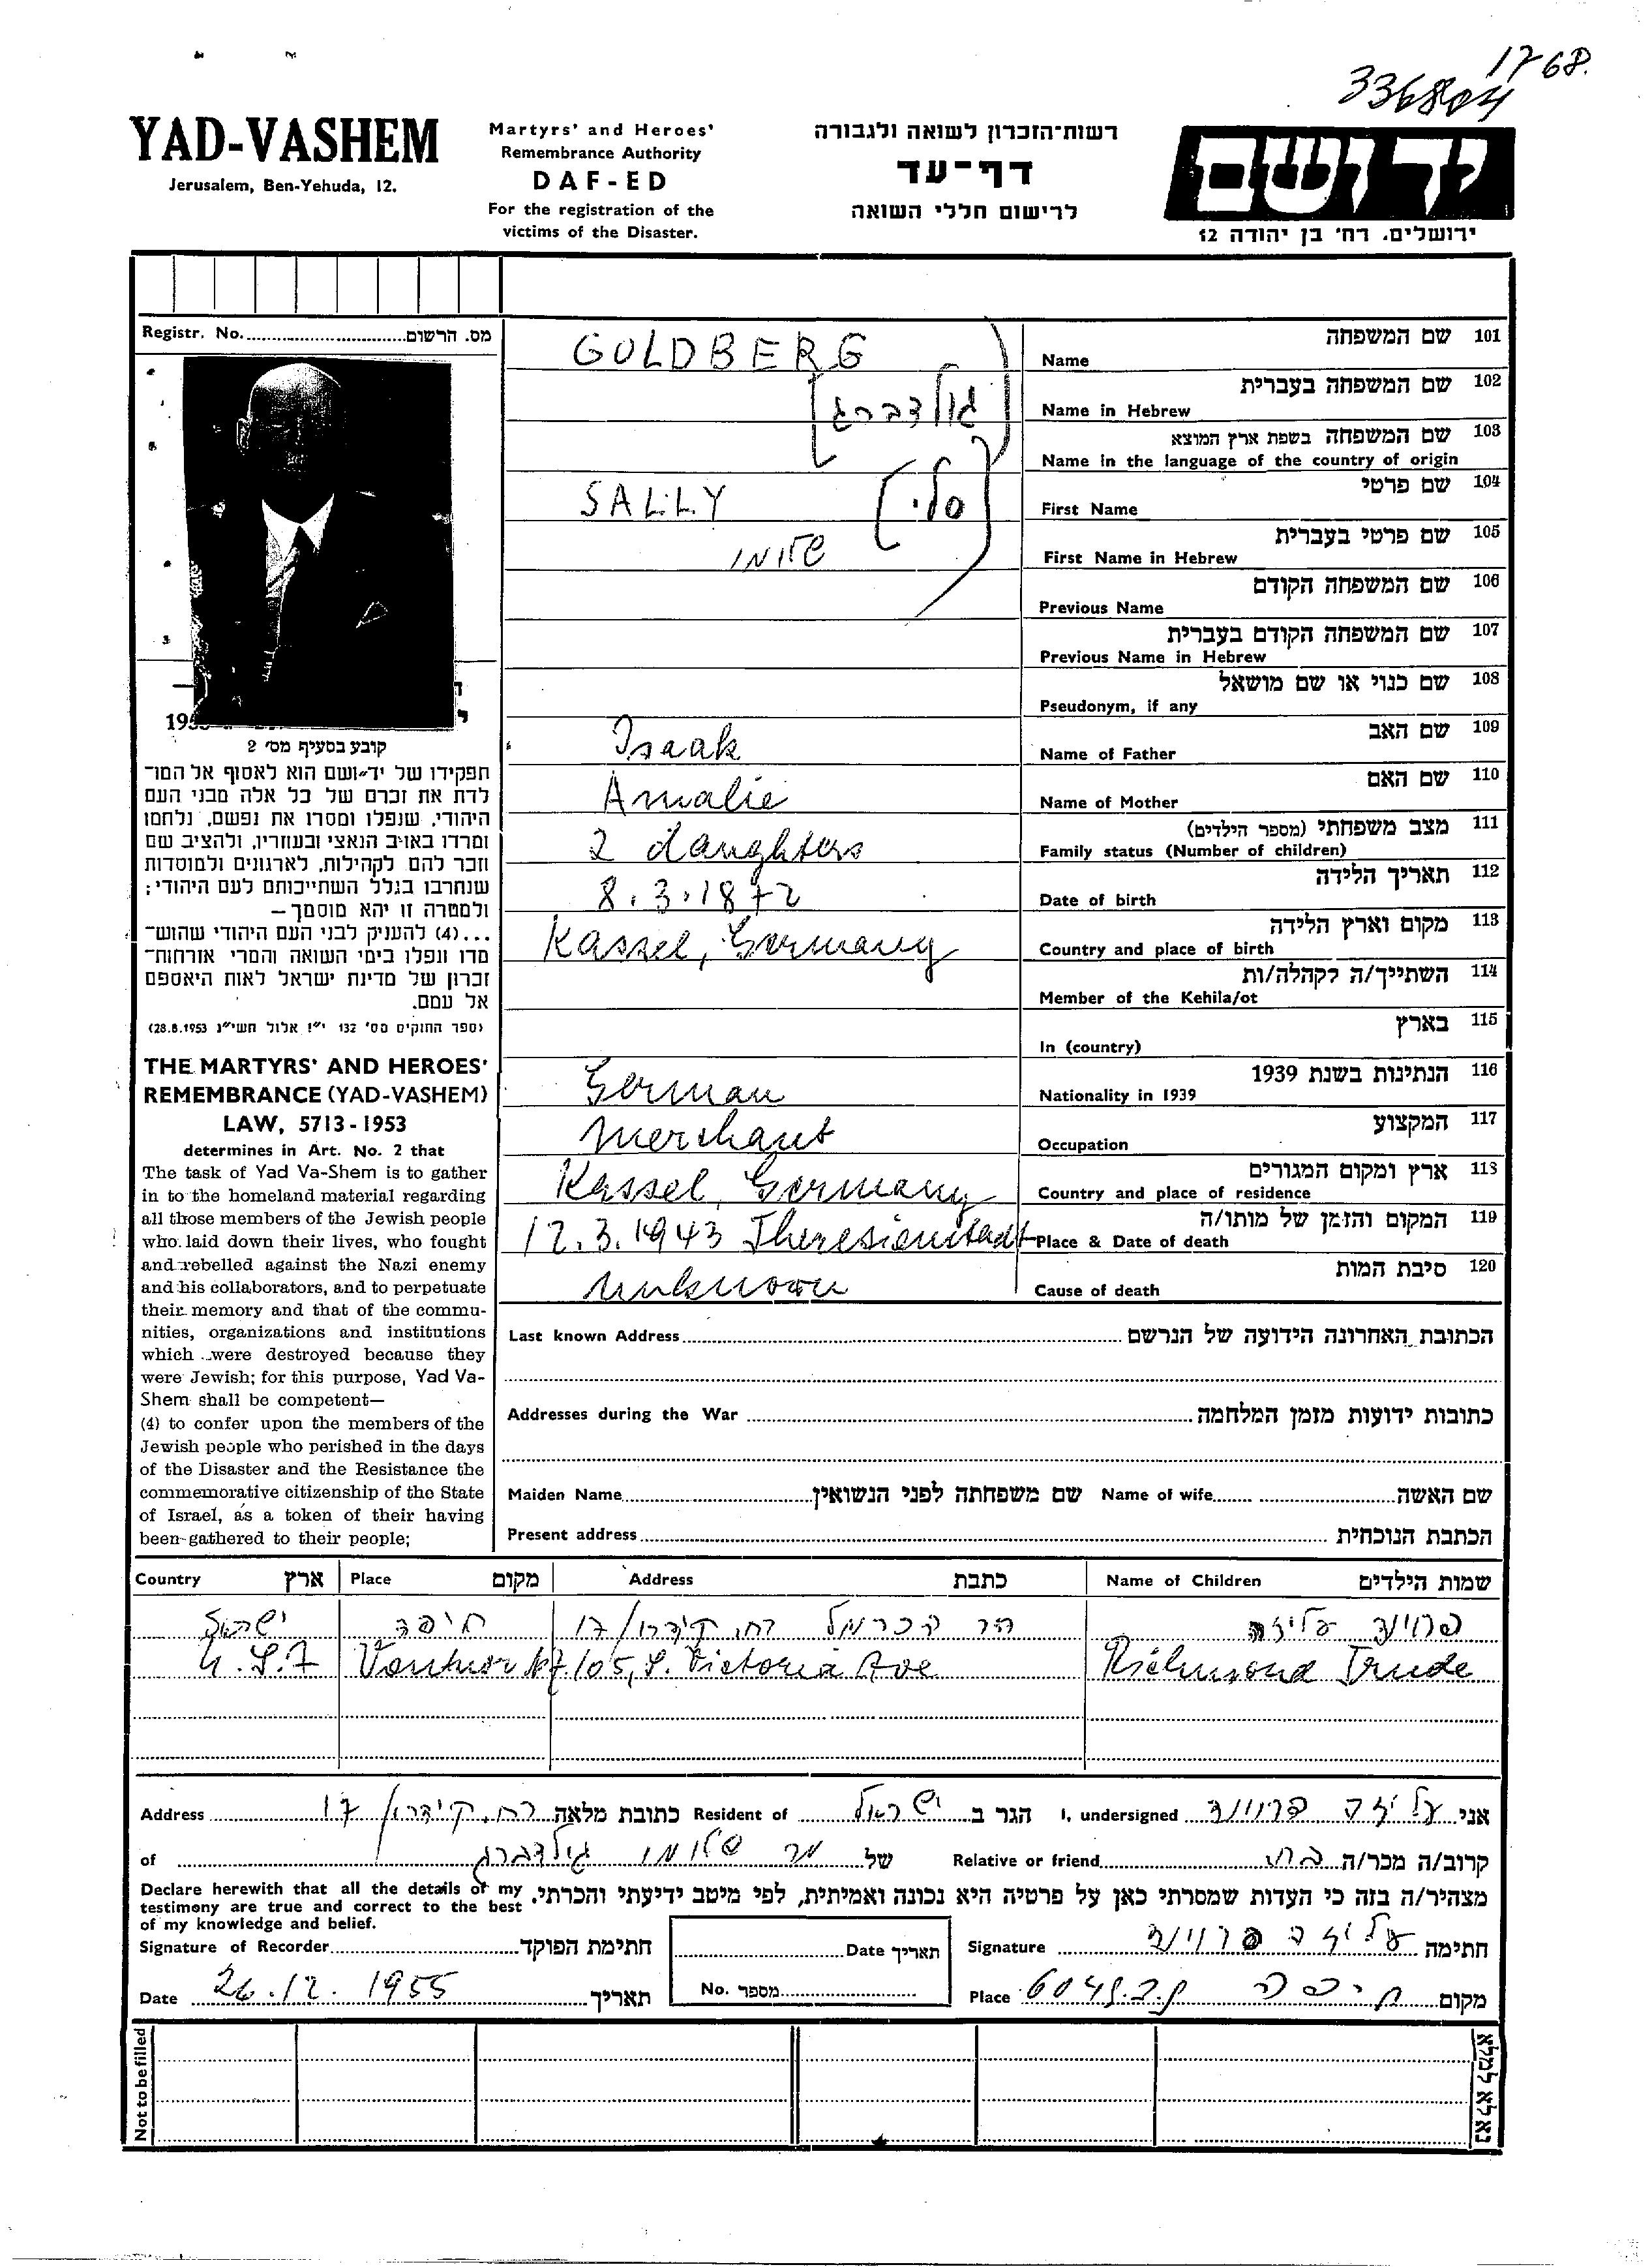 1768.
336804
YAD-VASHEM
Jerusalem, Ben-Yehuda, 12.
Martyrs' and Heroes'
Remembrance Authority
DAF-ED
For the registration of the
victims of the Disaster.
רשות־הזכרון לשואה ולגבורה
דף־עד
לרישום חללי השואה
יד ושם
ירושלים, רח' בן יהודה 12
Registr. No. מס. הרשום
19
קובע בסעיף מס' 2
תפקידו של יד־ושם הוא לאסוף אל המו־
לדת את זכרם של כל אלה מבני העם
היהודי, שנפלו ומסרו את נפשם, נלחמו
ומרדו באויב הנאצי ובעוזריו, ולהציב שם
וזכר להם לקהילות, לארגונים ולמוסדות
שנחרבו בגלל השתייכותם לעם היהודי;
ולמטרה זו יהא מוסמך—
...(4) להעניק לבני העם היהודי שהוש־
מדו ונפלו בימי השואה והמרי אזרחות־
זכרון של מדינת ישראל לאות היאספם
אל עמם.
(ספר החוקים מס' 132 י"ז אלול תשי"ג 28.8.1953)
THE MARTYRS' AND HEROES'
REMEMBRANCE (YAD-VASHEM)
LAW, 5713-1953
determines in Art. No. 2 that
The task of Yad Va-Shem is to gather
in to the homeland material regarding
all those members of the Jewish people
who laid down their lives, who fought
and rebelled against the Nazi enemy
and his collaborators, and to perpetuate
their memory and that of the commu-
nities, organizations and institutions
which were destroyed because they
were Jewish; for this purpose, Yad Va-
Shem shall be competent—
(4) to confer upon the members of the
Jewish people who perished in the days
of the Disaster and the Resistance the
commemorative citizenship of the State
of Israel, as a token of their having
been gathered to their people;
GOLDBERG Name שם המשפחה 101
גולדברג Name in Hebrew שם המשפחה בעברית 102
Name in the language of the country of origin שם המשפחה בשפת ארץ המוצא 103
SALLY סלי First Name שם פרטי 104
שלומו First Name in Hebrew שם פרטי בעברית 105
Previous Name שם המשפחה הקודם 106
Previous Name in Hebrew שם המשפחה הקודם בעברית 107
Pseudonym, if any שם כנוי או שם מושאל 108
Isaak Name of Father שם האב 109
Amalie Name of Mother שם האם 110
2 daughters Family status (Number of children) מצב משפחתי (מספר הילדים) 111
8.3.1872 Date of birth תאריך הלידה 112
Kassel, Germany Country and place of birth מקום וארץ הלידה 113
Member of the Kehila/ot השתייך/ה לקהלה/ות 114
In (country) בארץ 115
German Nationality in 1939 הנתינות בשנת 1939 116
Merchant Occupation המקצוע 117
Kassel, Germany Country and place of residence ארץ ומקום המגורים 118
12.3.1943 Theresienstadt Place & Date of death המקום והזמן של מותו/ה 119
Unknown Cause of death סיבת המות 120
Last known Address הכתובת האחרונה הידועה של הנרשם
Addresses during the War כתובות ידועות מזמן המלחמה
Maiden Name שם משפחתה לפני הנשואין Name of wife שם האשה
Present address הכתבת הנוכחית
Country ארץ Place מקום Address כתבת Name of Children שמות הילדים
ישראל חיפה הר הכרמל רח. קידרון 17 פרוינד עליזה
U.S.A Ventnor N.J 105, S. Victoria Ave Richmond Trude
Address רח. קידרון 17 כתובת מלאה Resident of ישראל הגר ב I, undersigned עליזה פרוינד אני
of מר שלומו גולדברג של Relative or friend בת קרוב/ה מכר/ה
Declare herewith that all the details of my
testimony are true and correct to the best
of my knowledge and belief.
מצהיר/ה בזה כי העדות שמסרתי כאן על פרטיה היא נכונה ואמיתית, לפי מיטב ידיעתי והכרתי.
Signature of Recorder חתימת הפוקד Date תאריך Signature עליזה פרוינד חתימה
Date 26.12.1955 תאריך No. מספר Place חיפה ת.ד. 6048 מקום
Not to be filled נא לא למלא